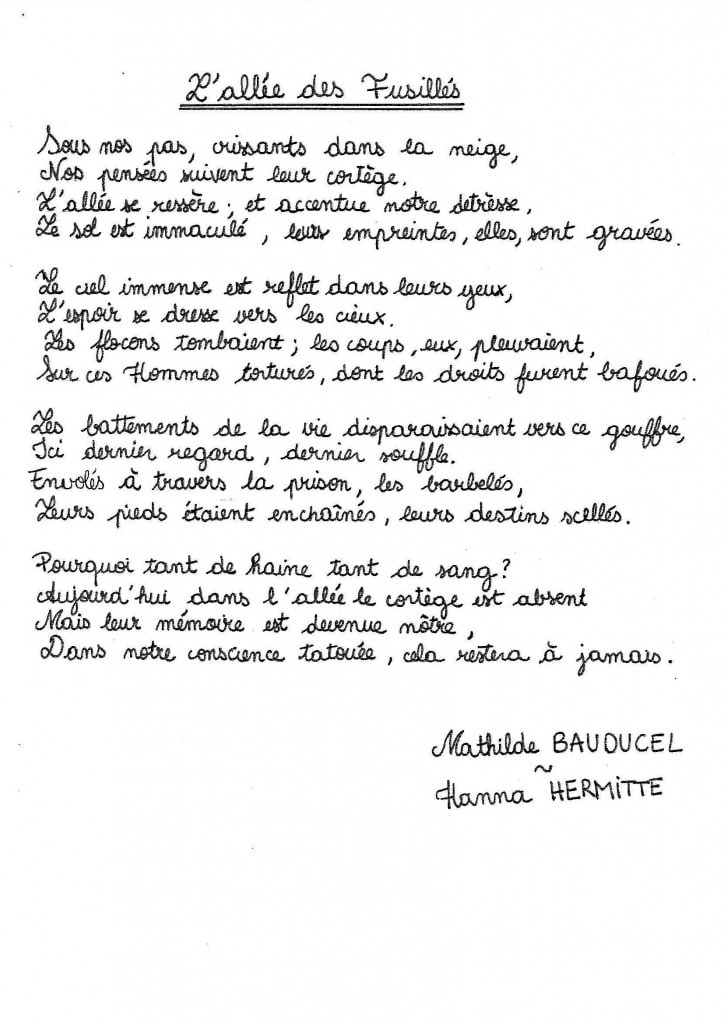 L'allée des Fusillés
Sous nos pas, crissants dans la neige,
Nos pensées suivent leur cortège.
L'allée se ressère ; et accentue notre detrèsse,
Le sol est immaculé, leurs empreintes, elles, sont gravées.
Le ciel immense est reflet dans leurs yeux,
L'espoir se dresse vers les cieux.
Les flocons tombaient ; les coups, eux, pleuvaient,
Sur ces Hommes torturés, dont les droits furent bafoués.
Les battements de la vie disparaissaient vers ce gouffre,
Ici dernier regard, dernier souffle.
Envolés à travers la prison, les barbelés,
Leurs pieds étaient enchaînés, leurs destins scellés.
Pourquoi tant de haine tant de sang?
Aujourd'hui dans l'allée le cortège est absent
Mais leur mémoire est devenue nôtre,
Dans notre conscience tatouée, cela restera à jamais.
Mathilde BAUDUCEL
~
Hanna HERMITTE